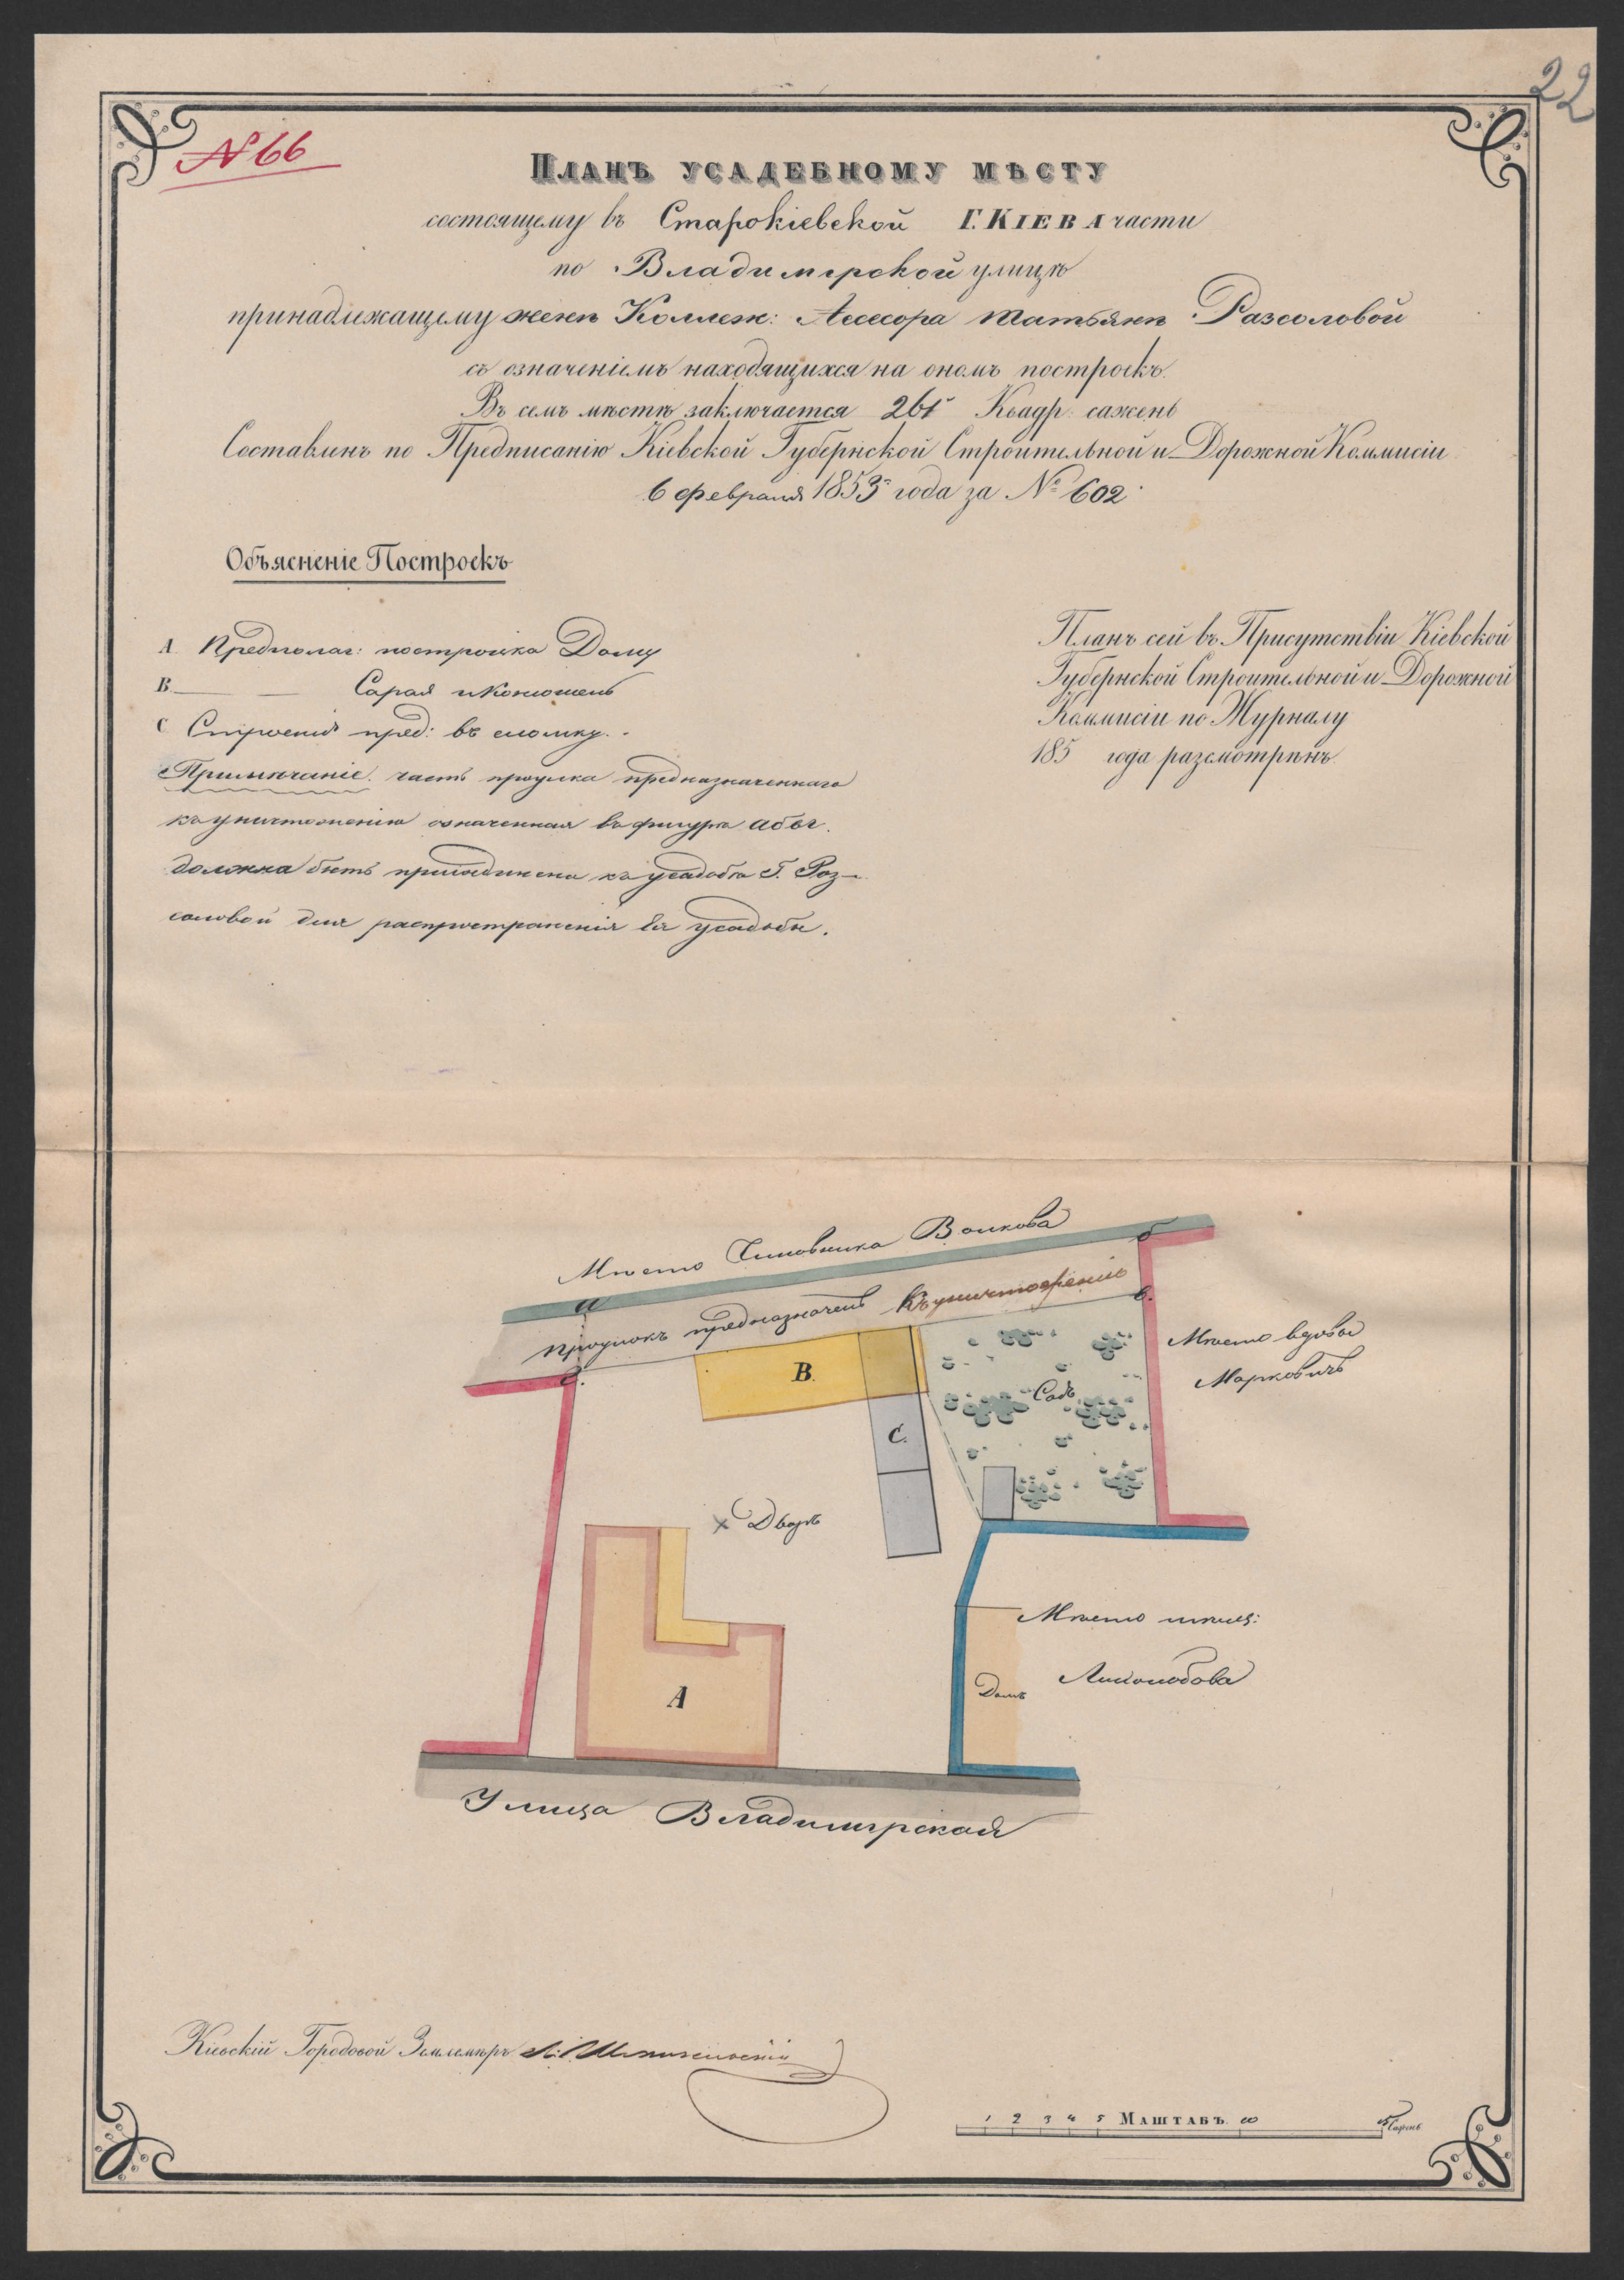 22
№ 66
Планъ усадебному мѣсту
состоящему въ Старокіевской Г. Кіева части
по Владимірской улицѣ
принадлежащему женѣ Коллеж: Асесора Татьянѣ Разсоловой
съ означеніемъ находящихся на ономъ построекъ.
Въ семъ мѣстѣ заключается 261 Квадр: сажень
Составленъ по Предписанію Кіевской Губернской Строительной и Дорожной Коммисіи
6 февраля 1853 года за № 602
Объясненіе Построекъ
A Предполаг: постройка Дому
B Сарая и Конюшень
C Строенія пред: въ сломку.
Примѣчаніе. часть проулка предназначеннаго
къ уничтоженію означенная въ фигурѣ абвг.
должна быть присоединена къ усадьбѣ Г. Роз-
соловой для распространенія ея усадьбы.
Планъ сей въ Присутствіи Кіевской
Губернской Строительной и Дорожной
Коммисіи по Журналу
185 года разсмотрѣнъ.
Мѣсто Чиновника Волкова
а
б
Проулокъ предназначенъ Къ уничтоженію
в.
г.
B.
Садъ
Мѣсто вдовы
Марковичъ
C.
Дворъ
Мѣсто
Домъ
A
Улица Владимірская
Кіевскій Городовой Землемѣръ
1 2 3 4 5 Маштабъ. 10 15 Сажень